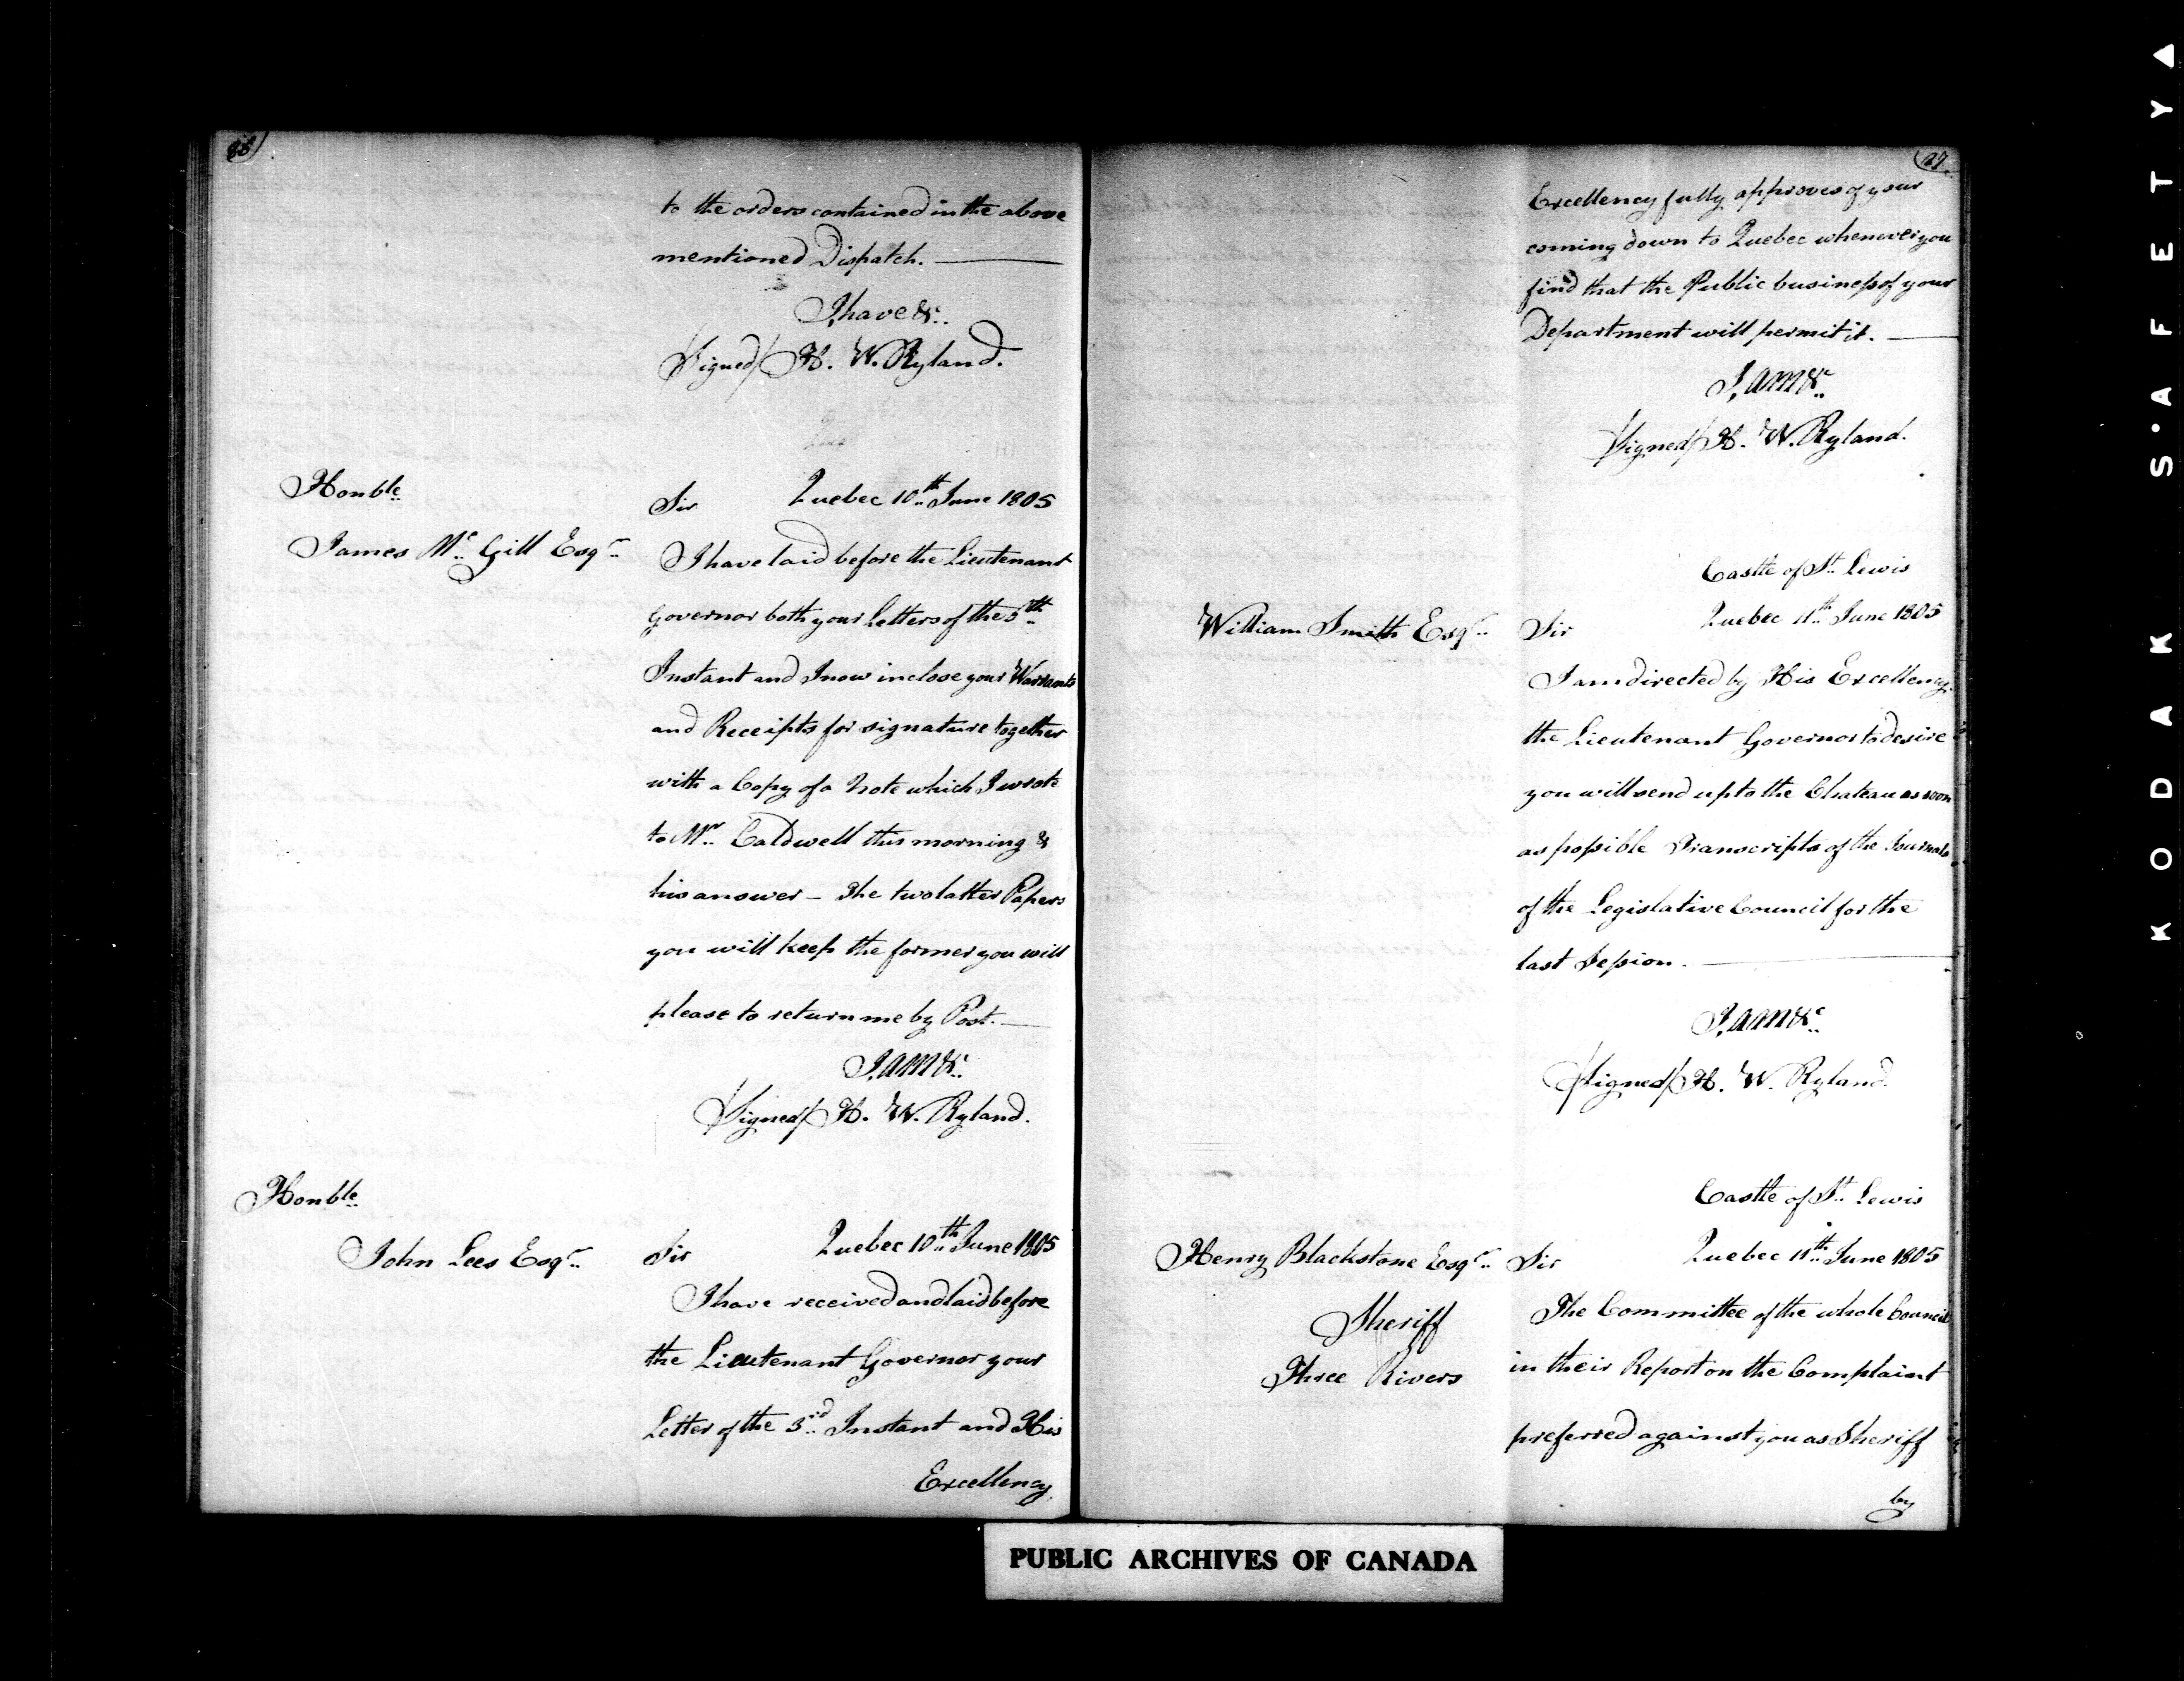 to the orders contained in the above
mentioned Dispatch.
I have &c.
Signed/ H. W. Ryland.
Honble
James Mc Gill Esqr
Sir Quebec 10th June 1805
I have laid before the Lieutenant
Governor both your Letters of the 5th
Instant and I now inclose your Warrants
and Receipts for signature together
with a Copy of a Note which I wrote
to Mr. Caldwell this morning &
his answer – The two latter Papers
you will keep the former you will
please to return me by Post.
I am &c.
Signed/ H. W. Ryland.
Honble
John Lees Esqr
Sir Quebec 10th June 1805
I have received and laid before
the Lieutenant Governor your
Letter of the 3rd Instant and His
Excellency
27
Excellency fully approves of your
coming down to Quebec whenever you
find that the Public business of your
Department will permit it.
I am &c.
Signed/ H. W. Ryland.
Castle of St. Lewis
William Smith Esqr Sir Quebec 11th June 1805
I am directed by His Excellency
the Lieutenant Governor to desire
you will send up to the Chateau as soon
as possible Transcripts of the Journals
of the Legislative Council for the
last Session.
I am &c.
Signed/ H. W. Ryland.
Castle of St. Lewis
Henry Blackstone Esqr Sir Quebec 11th June 1805
Sheriff
Three Rivers
The Committee of the whole Council
in their Report on the Complaint
preferred against you as Sheriff
by
PUBLIC ARCHIVES OF CANADA
KODAK S·AFETY